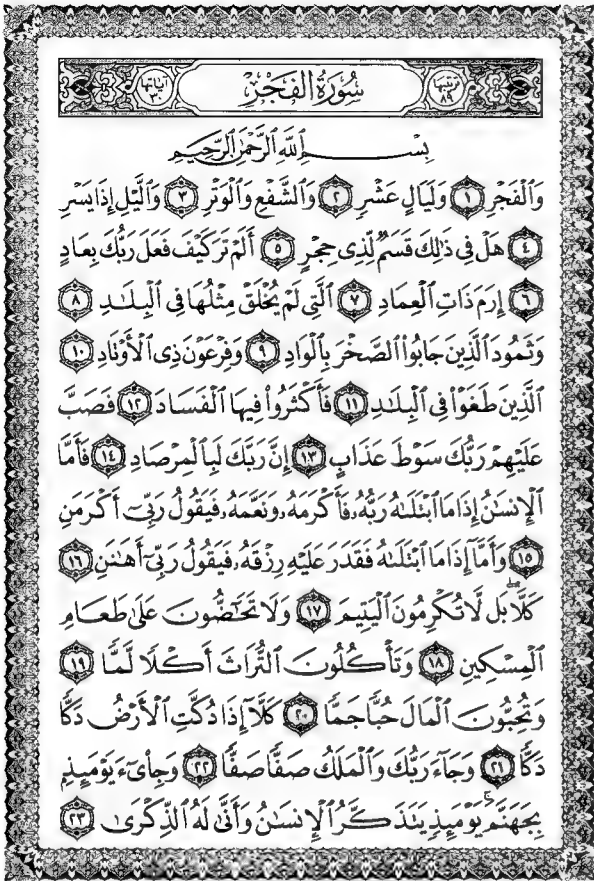 ترتيبها ٨٩ سُورَةُ الْفَجْرِ آياتها ٣٠
بِسْمِ ٱللَّهِ ٱلرَّحْمَٰنِ ٱلرَّحِيمِ
وَٱلْفَجْرِ ١ وَلَيَالٍ عَشْرٍ ٢ وَٱلشَّفْعِ وَٱلْوَتْرِ ٣ وَٱلَّيْلِ إِذَا يَسْرِ
٤ هَلْ فِى ذَٰلِكَ قَسَمٌ لِّذِى حِجْرٍ ٥ أَلَمْ تَرَ كَيْفَ فَعَلَ رَبُّكَ بِعَادٍ
٦ إِرَمَ ذَاتِ ٱلْعِمَادِ ٧ ٱلَّتِى لَمْ يُخْلَقْ مِثْلُهَا فِى ٱلْبِلَٰدِ ٨
وَثَمُودَ ٱلَّذِينَ جَابُوا۟ ٱلصَّخْرَ بِٱلْوَادِ ٩ وَفِرْعَوْنَ ذِى ٱلْأَوْتَادِ ١٠
ٱلَّذِينَ طَغَوْا۟ فِى ٱلْبِلَٰدِ ١١ فَأَكْثَرُوا۟ فِيهَا ٱلْفَسَادَ ١٢ فَصَبَّ
عَلَيْهِمْ رَبُّكَ سَوْطَ عَذَابٍ ١٣ إِنَّ رَبَّكَ لَبِٱلْمِرْصَادِ ١٤ فَأَمَّا
ٱلْإِنسَٰنُ إِذَا مَا ٱبْتَلَىٰهُ رَبُّهُۥ فَأَكْرَمَهُۥ وَنَعَّمَهُۥ فَيَقُولُ رَبِّىٓ أَكْرَمَنِ
١٥ وَأَمَّآ إِذَا مَا ٱبْتَلَىٰهُ فَقَدَرَ عَلَيْهِ رِزْقَهُۥ فَيَقُولُ رَبِّىٓ أَهَٰنَنِ ١٦
كَلَّا ۖ بَل لَّا تُكْرِمُونَ ٱلْيَتِيمَ ١٧ وَلَا تَحَٰٓضُّونَ عَلَىٰ طَعَامِ
ٱلْمِسْكِينِ ١٨ وَتَأْكُلُونَ ٱلتُّرَاثَ أَكْلًا لَّمًّا ١٩
وَتُحِبُّونَ ٱلْمَالَ حُبًّا جَمًّا ٢٠ كَلَّآ إِذَا دُكَّتِ ٱلْأَرْضُ دَكًّا
دَكًّا ٢١ وَجَآءَ رَبُّكَ وَٱلْمَلَكُ صَفًّا صَفًّا ٢٢ وَجِا۟ىٓءَ يَوْمَئِذٍۭ
بِجَهَنَّمَ ۚ يَوْمَئِذٍ يَتَذَكَّرُ ٱلْإِنسَٰنُ وَأَنَّىٰ لَهُ ٱلذِّكْرَىٰ ٢٣